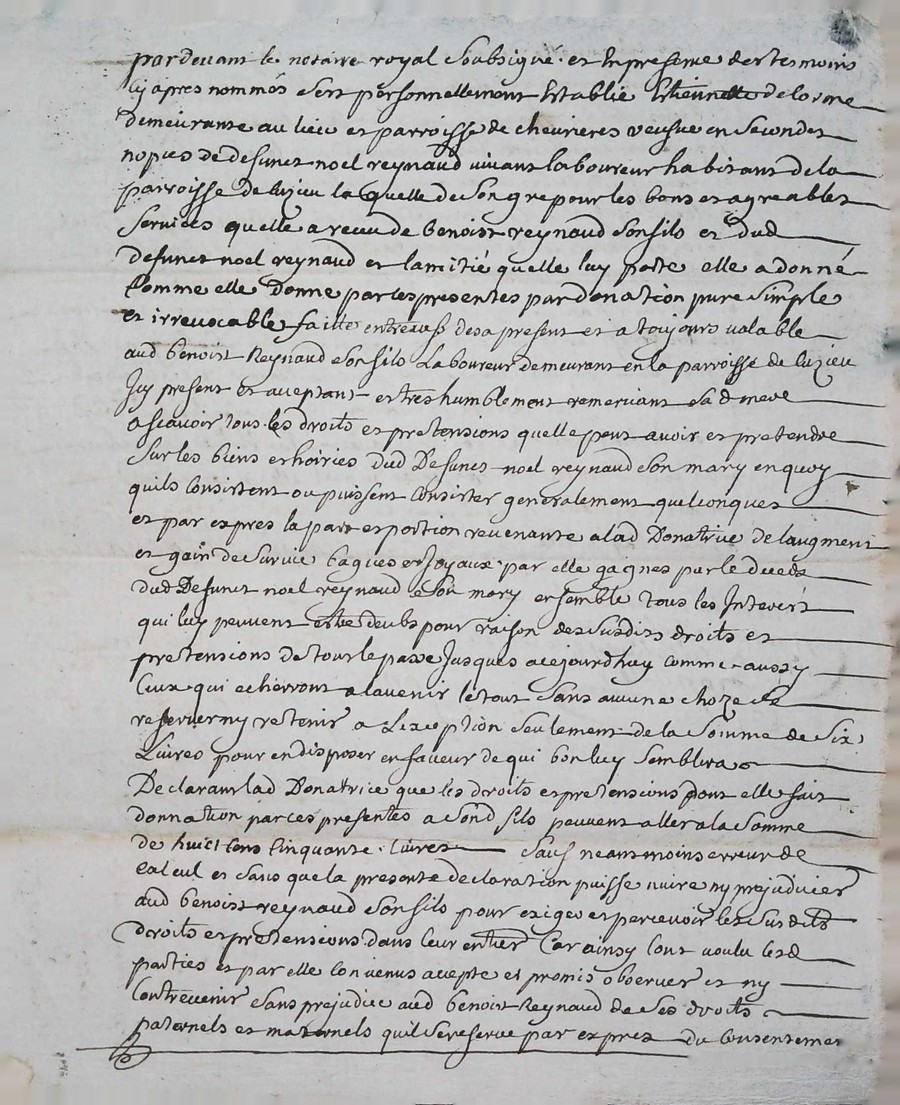 pardevant le notaire royal soubsigné et en presence des tesmoins
cy apres nommés sest personnellement establie Estiennette delorme
demeurante au lieu et parroisse de chevrieres veufve en secondes
nopces de defunct noel reynaud vivant laboureur habitant de la
parroisse de luzieu la quelle de son gre pour les bons et agreables
services quelle a receu de benoist reynaud son fils et dud
defunct noel reynaud et lamitié quelle luy porte elle a donné
comme elle donne par ces presentes par donation pure simple
et irrevocable faitte entre vifs des a present et a toujours valable
aud benoist Reynaud son fils Laboureur demeurant en la parroisse de luzieu
Icy present et acceptant et tres humblement remerciant sad mere
a scavoir tous les droits et pretensions quelle peut avoir et pretendre
sur les biens et hoiries dud Defunct noel reynaud son mary en quoy
quils consistent ou puissent consister generalement quelconques
et par expres la part et portion revenante a lad Donatrice de laugment
et gain de survie bagues et joyaux par elle gagnes par le deceds
dud Defunct noel reynaud son mary ensemble tous les Interest
qui luy peuvent estre deubs pour raison des susdits droits et
pretensions de tout le passe jusques a cejourdhuy comme aussy
Ceux qui echerront a lavenir le tout sans aucune choze se
reserver ny retenir a Lexception seulement de la somme de six
Livres pour en disposer en faveur de qui bon luy semblera
Declarant lad Donatrice que les droits et pretensions dont elle fait
donnation par ces presentes a sond fils peuvent aller a la somme
de huict cens cinquante livres sauf neantmoins erreur de
calcul et sans que la presente declaration puisse nuire ny prejudicier
aud benoist reynaud son fils pour exiger et percevoir les susdits
droits et pretensions dans leur entier Car ainsy lont voulu lesd
parties et par elle convenus accepte et promis observer et ny
contrevenir sans prejudice aud benoist Reynaud de ses droits
paternels et maternels quil se reserve par expres du consentemen